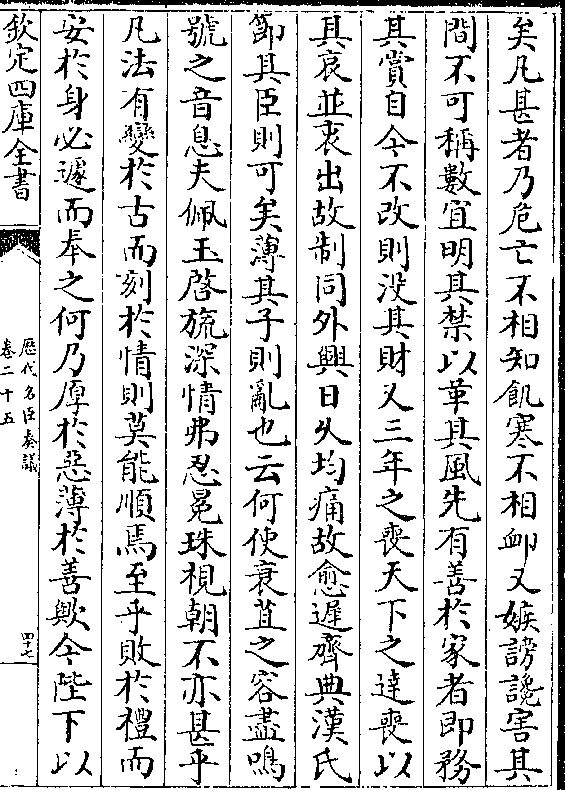 矣凡甚者乃危亡不相知飢寒不相卹又嫉謗讒害其
間不可稱數宜明其禁以革其風先有善於家者即務
其賞自今不改則没其財又三年之喪天下之達喪以
其哀並衷出故制同外興日久均痛故愈遲齊典漢氏
節其臣則可矣薄其子則亂也云何使衰苴之容盡鳴
號之音息夫佩玉啓旒深情弗忍冕珠視朝不亦甚乎
凡法有變於古而刻於情則莫能順焉至乎敗於禮而
安於身必遽而奉之何乃厚於惡薄於善歟今陛下以
欽定四庫全書
歴代名臣奏議
卷二十五
四十七